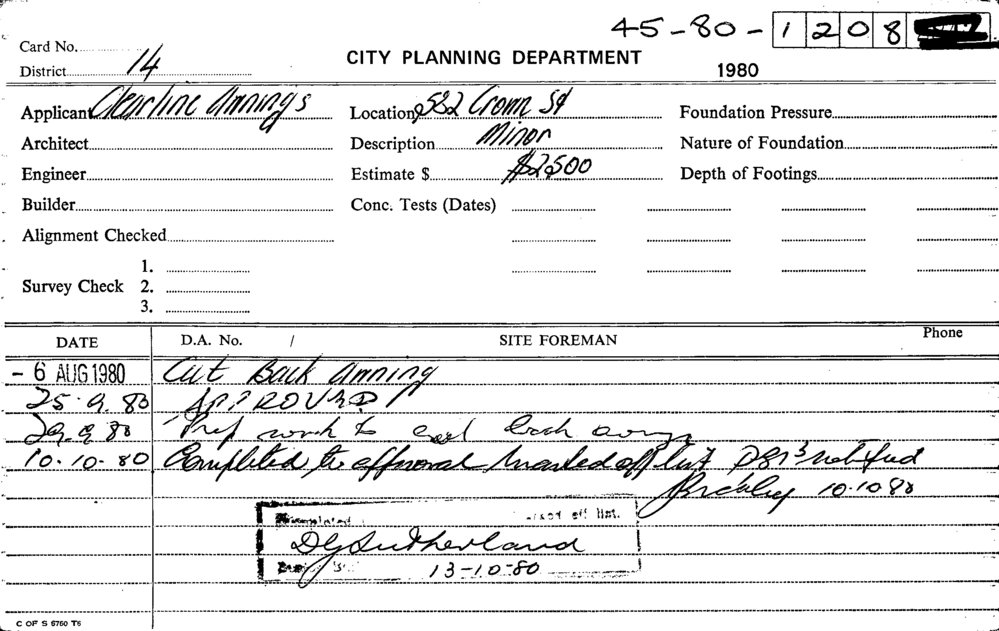 45-80-1208
Card No.
District 14
CITY PLANNING DEPARTMENT
1980
Applicant Clearline Awnings
Location 582 Crown St
Foundation Pressure
Architect
Description Minor
Nature of Foundation
Engineer
Estimate $ $2,500
Depth of Footings
Builder
Conc. Tests (Dates)
Alignment Checked
Survey Check 1.
2.
3.
DATE D.A. No. / SITE FOREMAN Phone
- 6 AUG 1980 Cut Back Awning
25.9.80 APPROVED
29.9.80 Prep work to cut back awning
10.10.80 Completed to approval marked off list DBS notified
10.10.80
Completed marked off list.
DG Sutherland
13-10-80
C OF S 6760 T6